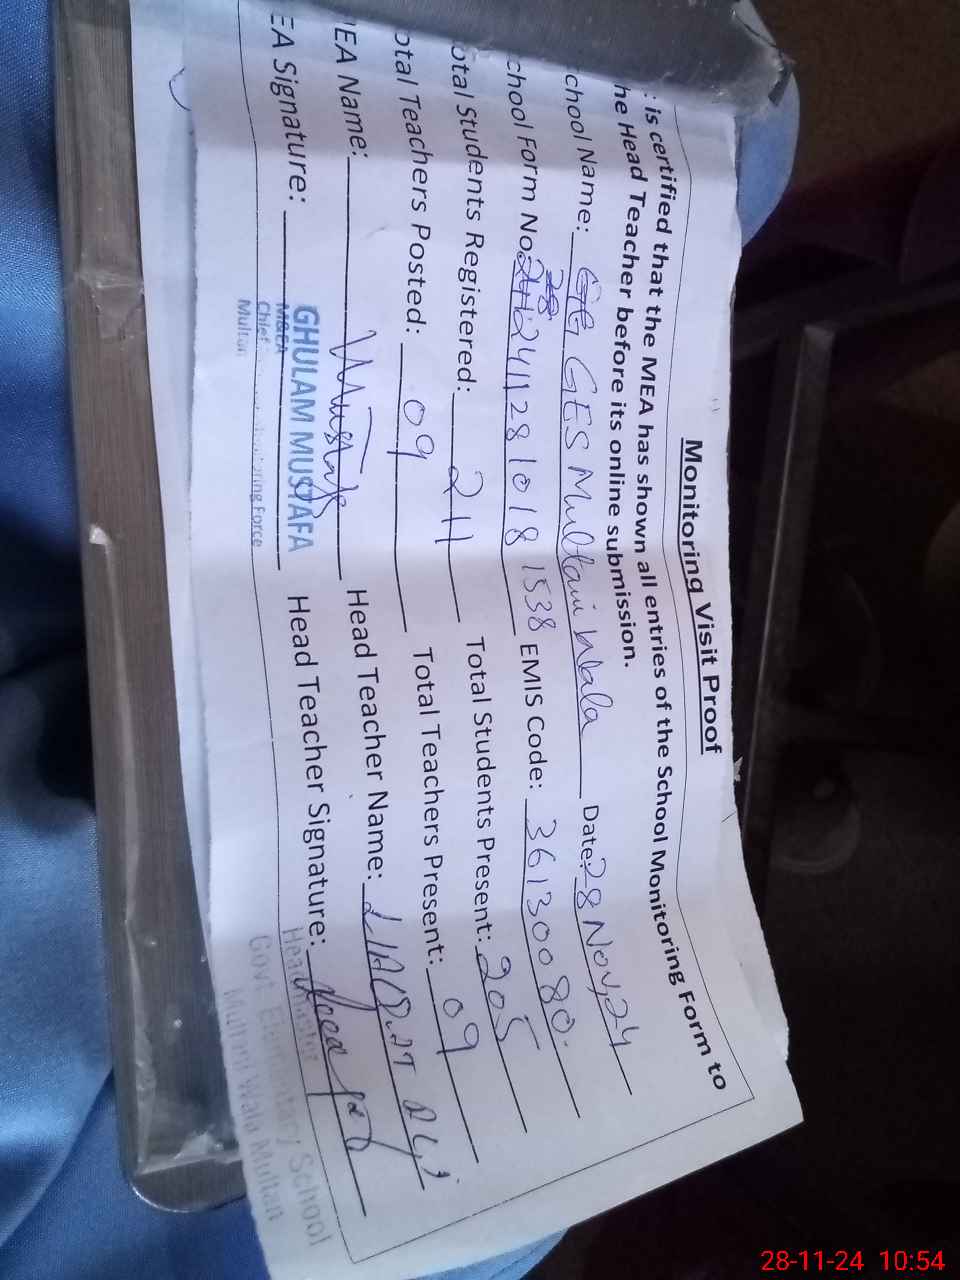 Monitoring Visit Proof
: is certified that the MEA has shown all entries of the School Monitoring Form to
he Head Teacher before its online submission.
chool Name: GES Multani wala Date: 28 Nov, 24
chool Form No. 241128 1018 1538 EMIS Code: 36130080
otal Students Registered: 211 Total Students Present: 205
otal Teachers Posted: 09 Total Teachers Present: 09
EA Name: Mustafa Head Teacher Name: LIAQUAT ALI
EA Signature: Head Teacher Signature:
GHULAM MUSTAFA
M&EA
Chief Monitoring Force
Multan
Headmaster
Govt. Elementary School
Multani Wala Multan
28-11-24 10:54